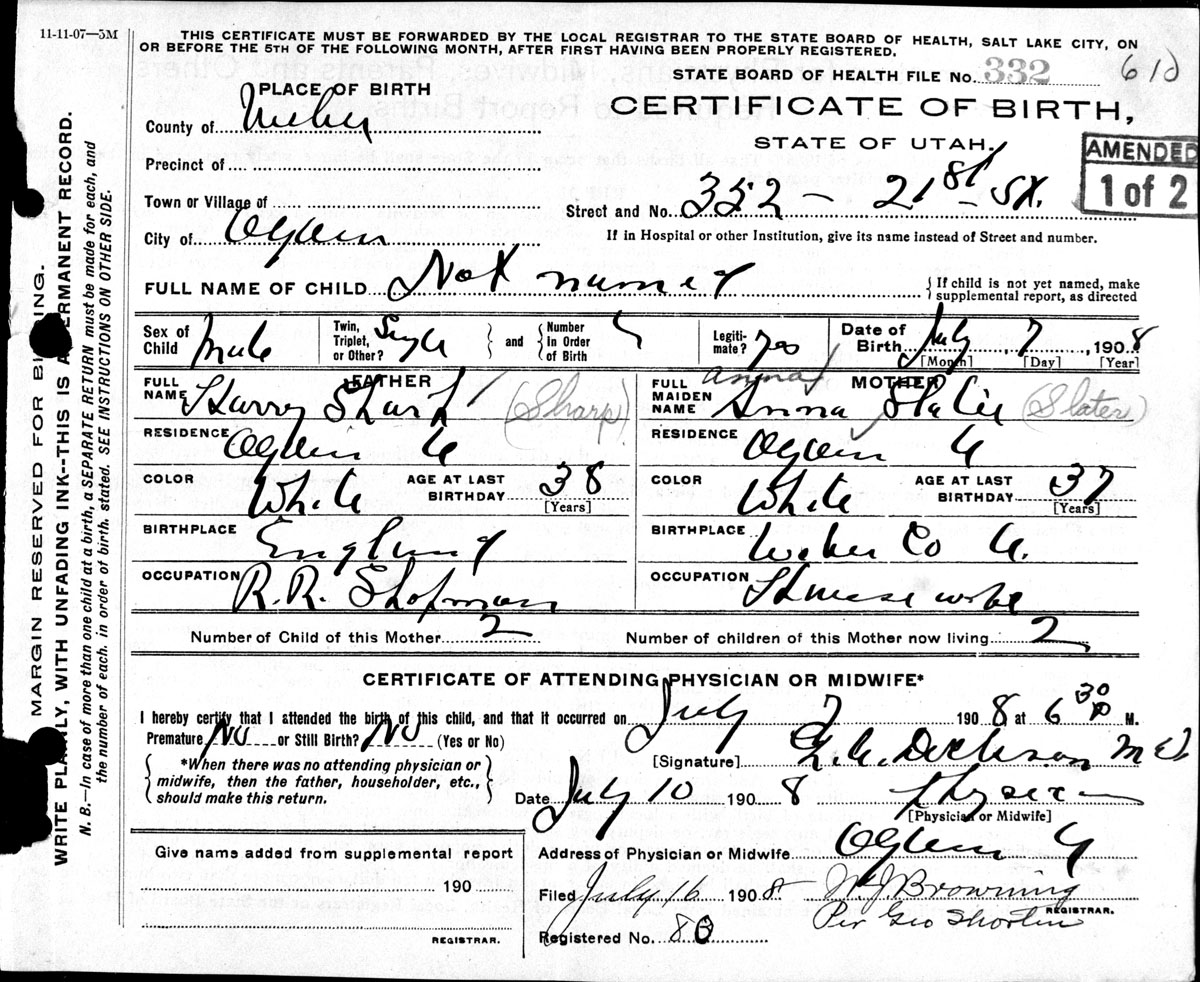 11-11-07—3M
THIS CERTIFICATE MUST BE FORWARDED BY THE LOCAL REGISTRAR TO THE STATE BOARD OF HEALTH, SALT LAKE CITY, ON
OR BEFORE THE 5TH OF THE FOLLOWING MONTH, AFTER FIRST HAVING BEEN PROPERLY REGISTERED.
STATE BOARD OF HEALTH FILE No. 332
610
PLACE OF BIRTH
CERTIFICATE OF BIRTH,
STATE OF UTAH.
AMENDED
1 of 2
County of Weber
Precinct of
Town or Village of
Street and No. 352 - 21st St.
City of Ogden
If in Hospital or other Institution, give its name instead of Street and number.
FULL NAME OF CHILD Not named
{ If child is not yet named, make
supplemental report, as directed
Sex of Child Male
Twin, Triplet, or Other? Single and { Number In Order of Birth
Legitimate? Yes
Date of Birth July 7, 1908
[Month] [Day] [Year]
FATHER
FULL NAME Harry Sharp (Sharp)
RESIDENCE Ogden U
COLOR White AGE AT LAST BIRTHDAY 38
[Years]
BIRTHPLACE England
OCCUPATION R.R. Shopman
MOTHER
FULL MAIDEN NAME Anna Slater (Slater)
RESIDENCE Ogden U
COLOR White AGE AT LAST BIRTHDAY 37
[Years]
BIRTHPLACE Weber Co U.
OCCUPATION Housewife
Number of Child of this Mother 2 Number of children of this Mother now living 2
CERTIFICATE OF ATTENDING PHYSICIAN OR MIDWIFE*
I hereby certify that I attended the birth of this child, and that it occurred on July 7 1908 at 6 30 P M.
Premature No or Still Birth? No (Yes or No)
*When there was no attending physician or
midwife, then the father, householder, etc.,
should make this return.
[Signature] Dickson MD
Date July 10 1908 Physician
[Physician or Midwife]
Address of Physician or Midwife Ogden U
Give name added from supplemental report
190
REGISTRAR.
Filed July 16 1908 W J Browning
REGISTRAR.
Per Geo Shorten
Registered No. 80
MARGIN RESERVED FOR BINDING.
WRITE PLAINLY, WITH UNFADING INK--THIS IS A PERMANENT RECORD.
N. B.—In case of more than one child at a birth, a SEPARATE RETURN must be made for each, and
the number of each, in order of birth, stated. SEE INSTRUCTIONS ON OTHER SIDE.